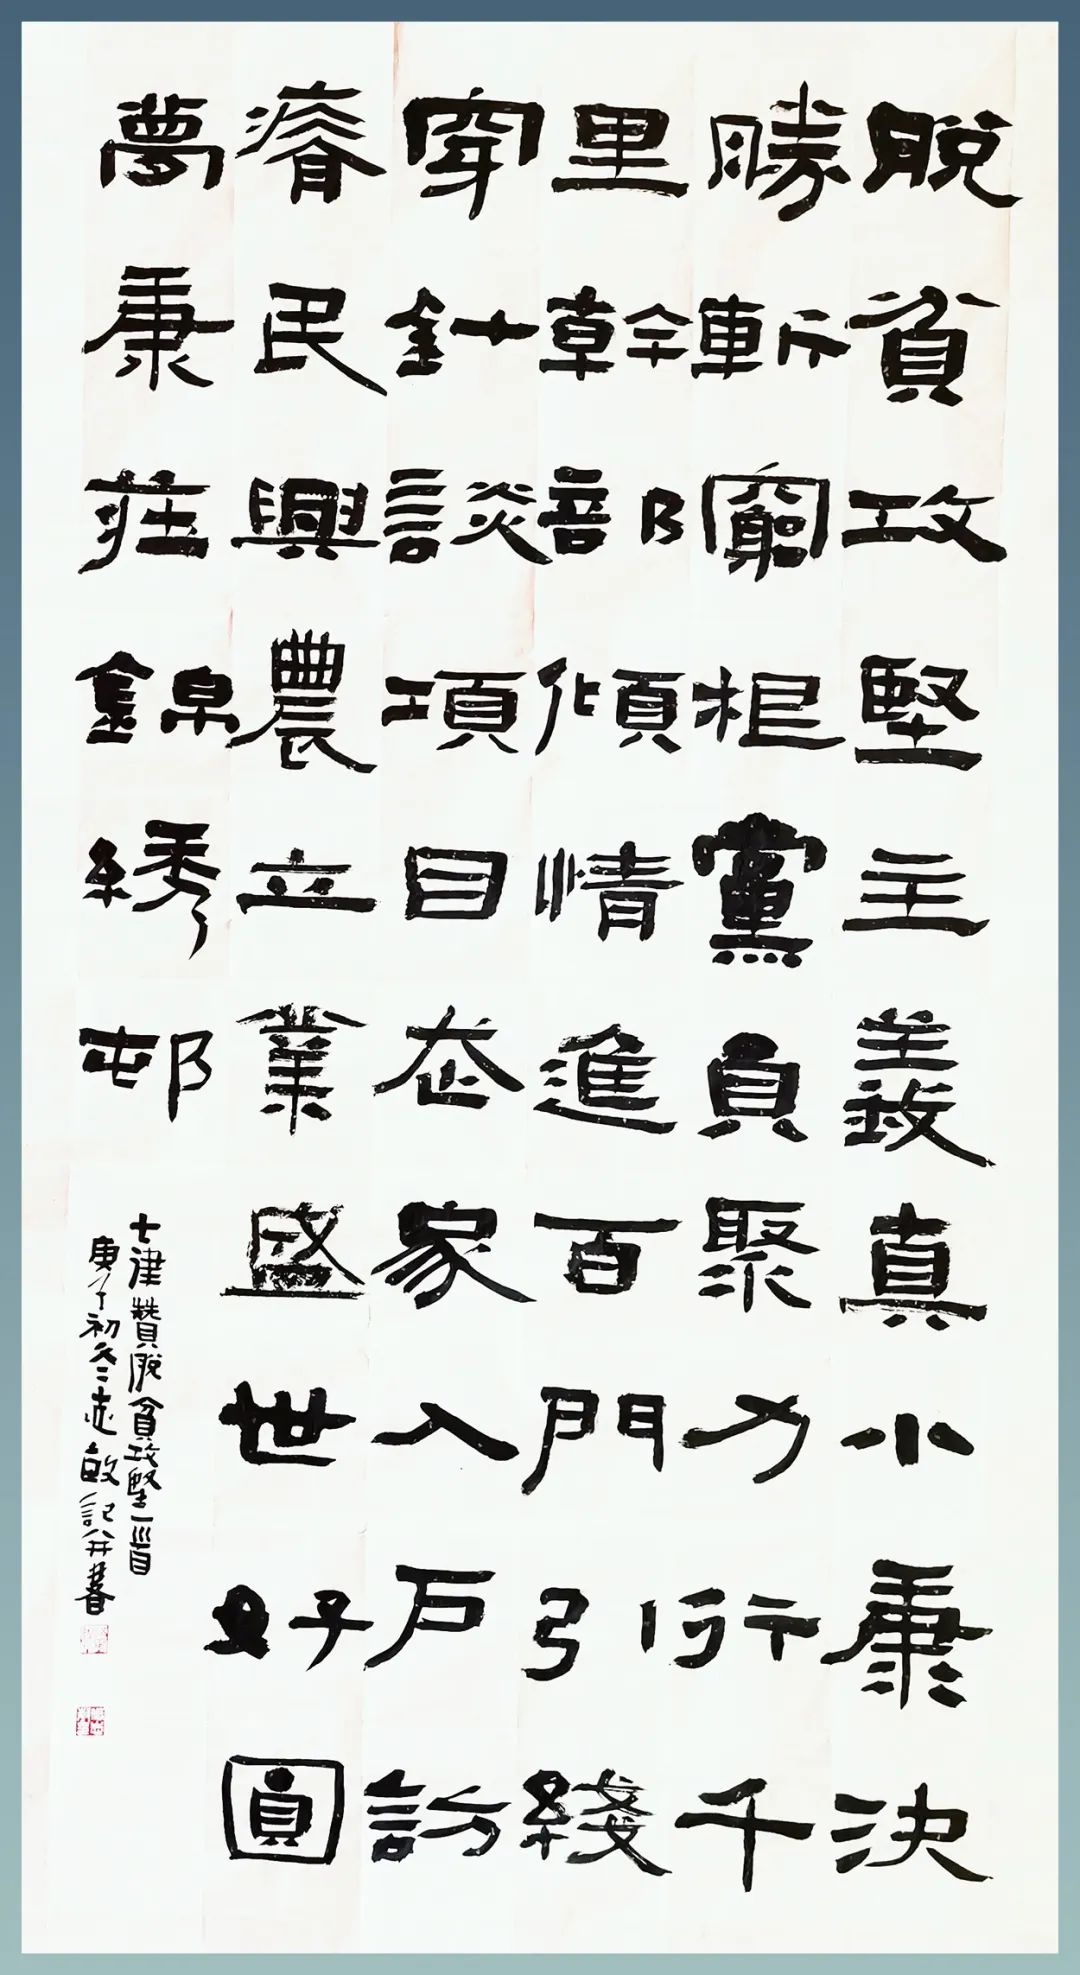 脫貧攻堅主義真小康決
勝斬窮根黨員聚力行千
里幹部傾情進百門引綫
穿針談項目走家入戶訪
瘠民興農立業盛世好圓
夢康莊錦綉邨
七律贊脫貧攻堅一首
庚子初冬志記并書